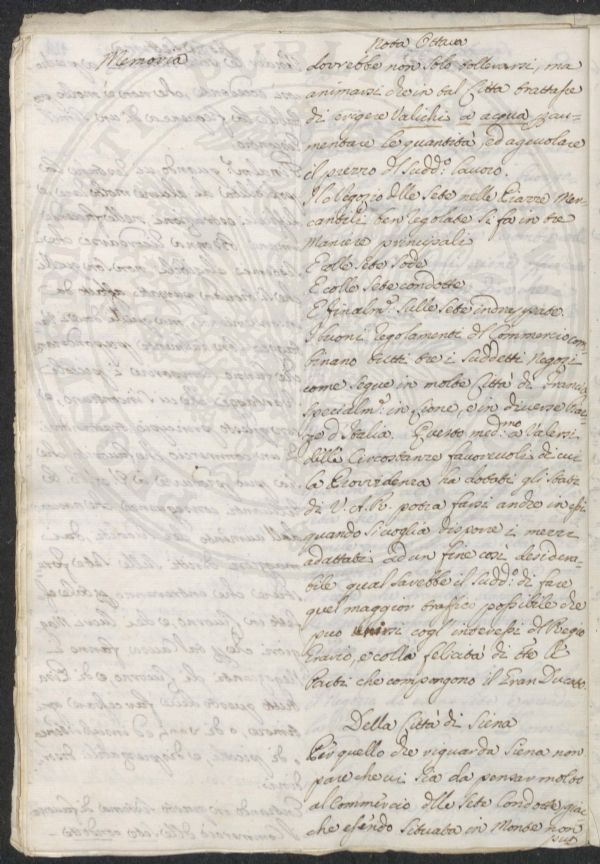 Memoria
Nota Ottava
dovrebbe non solo sollevarsi, ma
animarsi che in tal Città trattasse
di erigere Valichi a acqua p au-
mentare le quantità, ed agevolare
il prezzo dl Sudd.º lavoro.
Il Negozio dlle Sete nelle Piazze Mer-
cantili ben regolate si fa in tre
Maniere principali
E colle Sete Sode
E colle Sete condotte
E finalm.e Sulle Sete
I buoni regolamenti dl Commercio com-
binano tutti tre i Suddetti Negozj
come segue in molte Città di Francia
Specialm.e in Lione, e in diverse Piaz-
ze d'Italia. Questo med.mo Valersi
dlle Circostanze favorevoli di cui
la Provvidenza ha dotati gli Stati
di V. A. R. potrà farsi anche in essi
quando si voglia disporre i mezzi
adattati ad un fine così desidera-
bile qual sarebbe il Sudd.º di fare
quel maggior traffico possibile che
può unirsi cogl'interessi dl Regio
Erario, e colla felicità di tre
Parti che compongono il Gran Ducato.
Della Città di Siena
Per quello che riguarda Siena non
pare che vi sia da pensar molto
al Commercio dlle Sete Condotte, già
che essendo Situata in Monte non
può